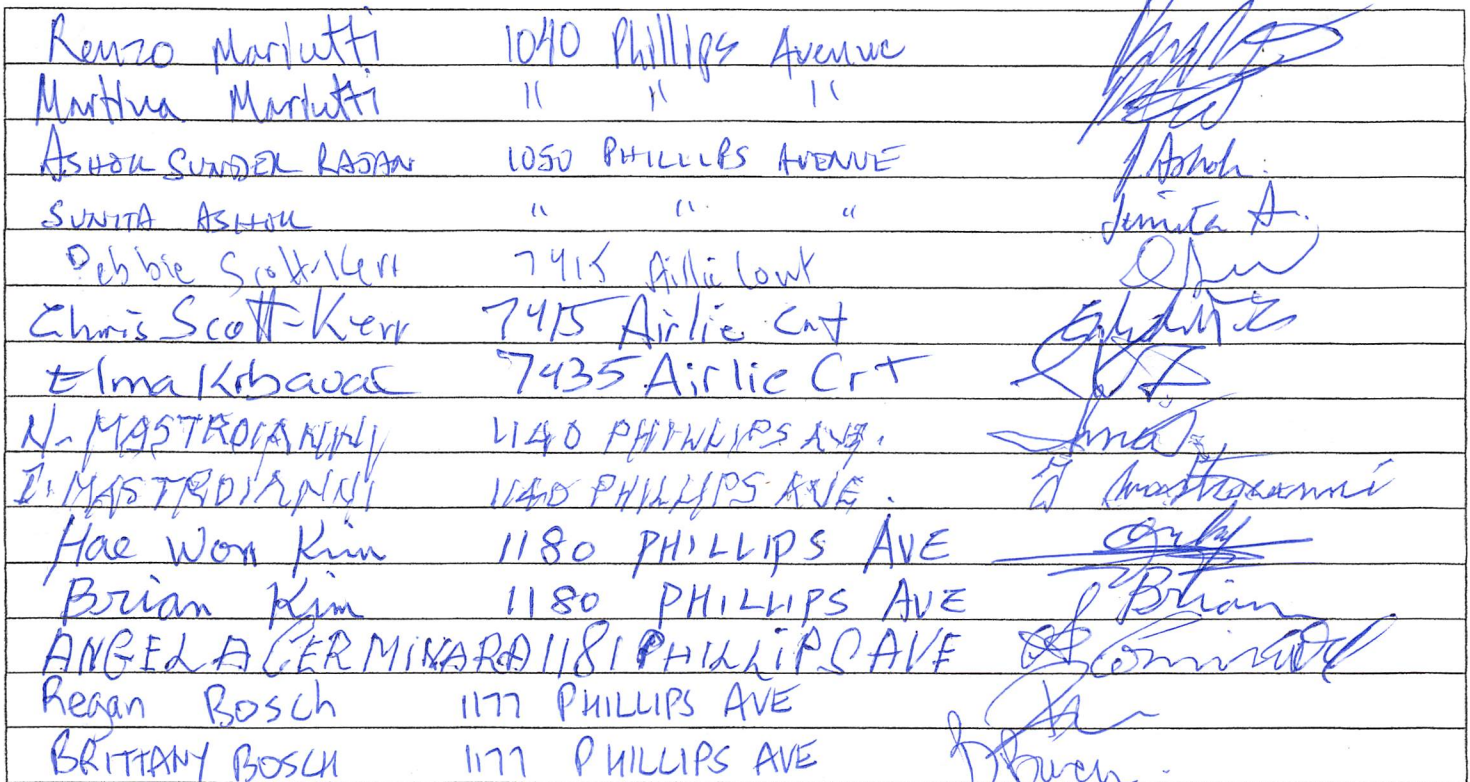 Renzo Mariutti 1040 Phillips Avenue
Martina Mariutti " " "
ASHOK SUNDER RAJAN 1050 PHILLIPS AVENUE Ashok.
SUNITA ASHOK " " " Sunita A.
Debbie Scott-Kerr 7415 Airlie Court
Chris Scott-Kerr 7415 Airlie Crt
Elma Krbavac 7435 Airlie Crt
N. MASTROIANNI 1140 PHILLIPS AVE.
I. MASTROIANNI 1140 PHILLIPS AVE. I Mastroianni
Hae Won Kim 1180 PHILLIPS AVE
Brian Kim 1180 PHILLIPS AVE Brian
ANGELA CERMINARA 1181 PHILLIPS AVE
Regan Bosch 1177 PHILLIPS AVE
BRITTANY BOSCH 1177 PHILLIPS AVE B Bosch.